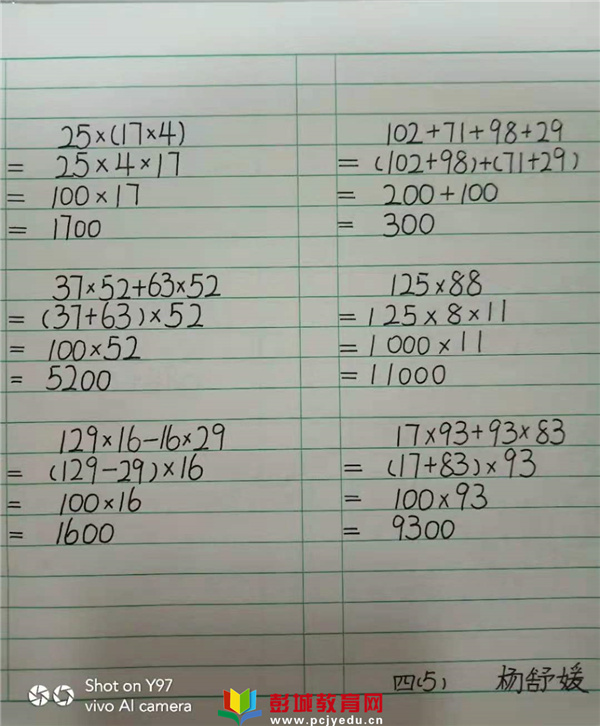 25×(17×4)
= 25×4×17
= 100×17
= 1700
37×52+63×52
= (37+63)×52
= 100×52
= 5200
129×16-16×29
= (129-29)×16
= 100×16
= 1600
102+71+98+29
= (102+98)+(71+29)
= 200+100
= 300
125×88
= 125×8×11
= 1000×11
= 11000
17×93+93×83
= (17+83)×93
= 100×93
= 9300
四(5) 杨舒媛
Shot on Y97
vivo AI camera
彭城教育网
www.pcjyedu.cn